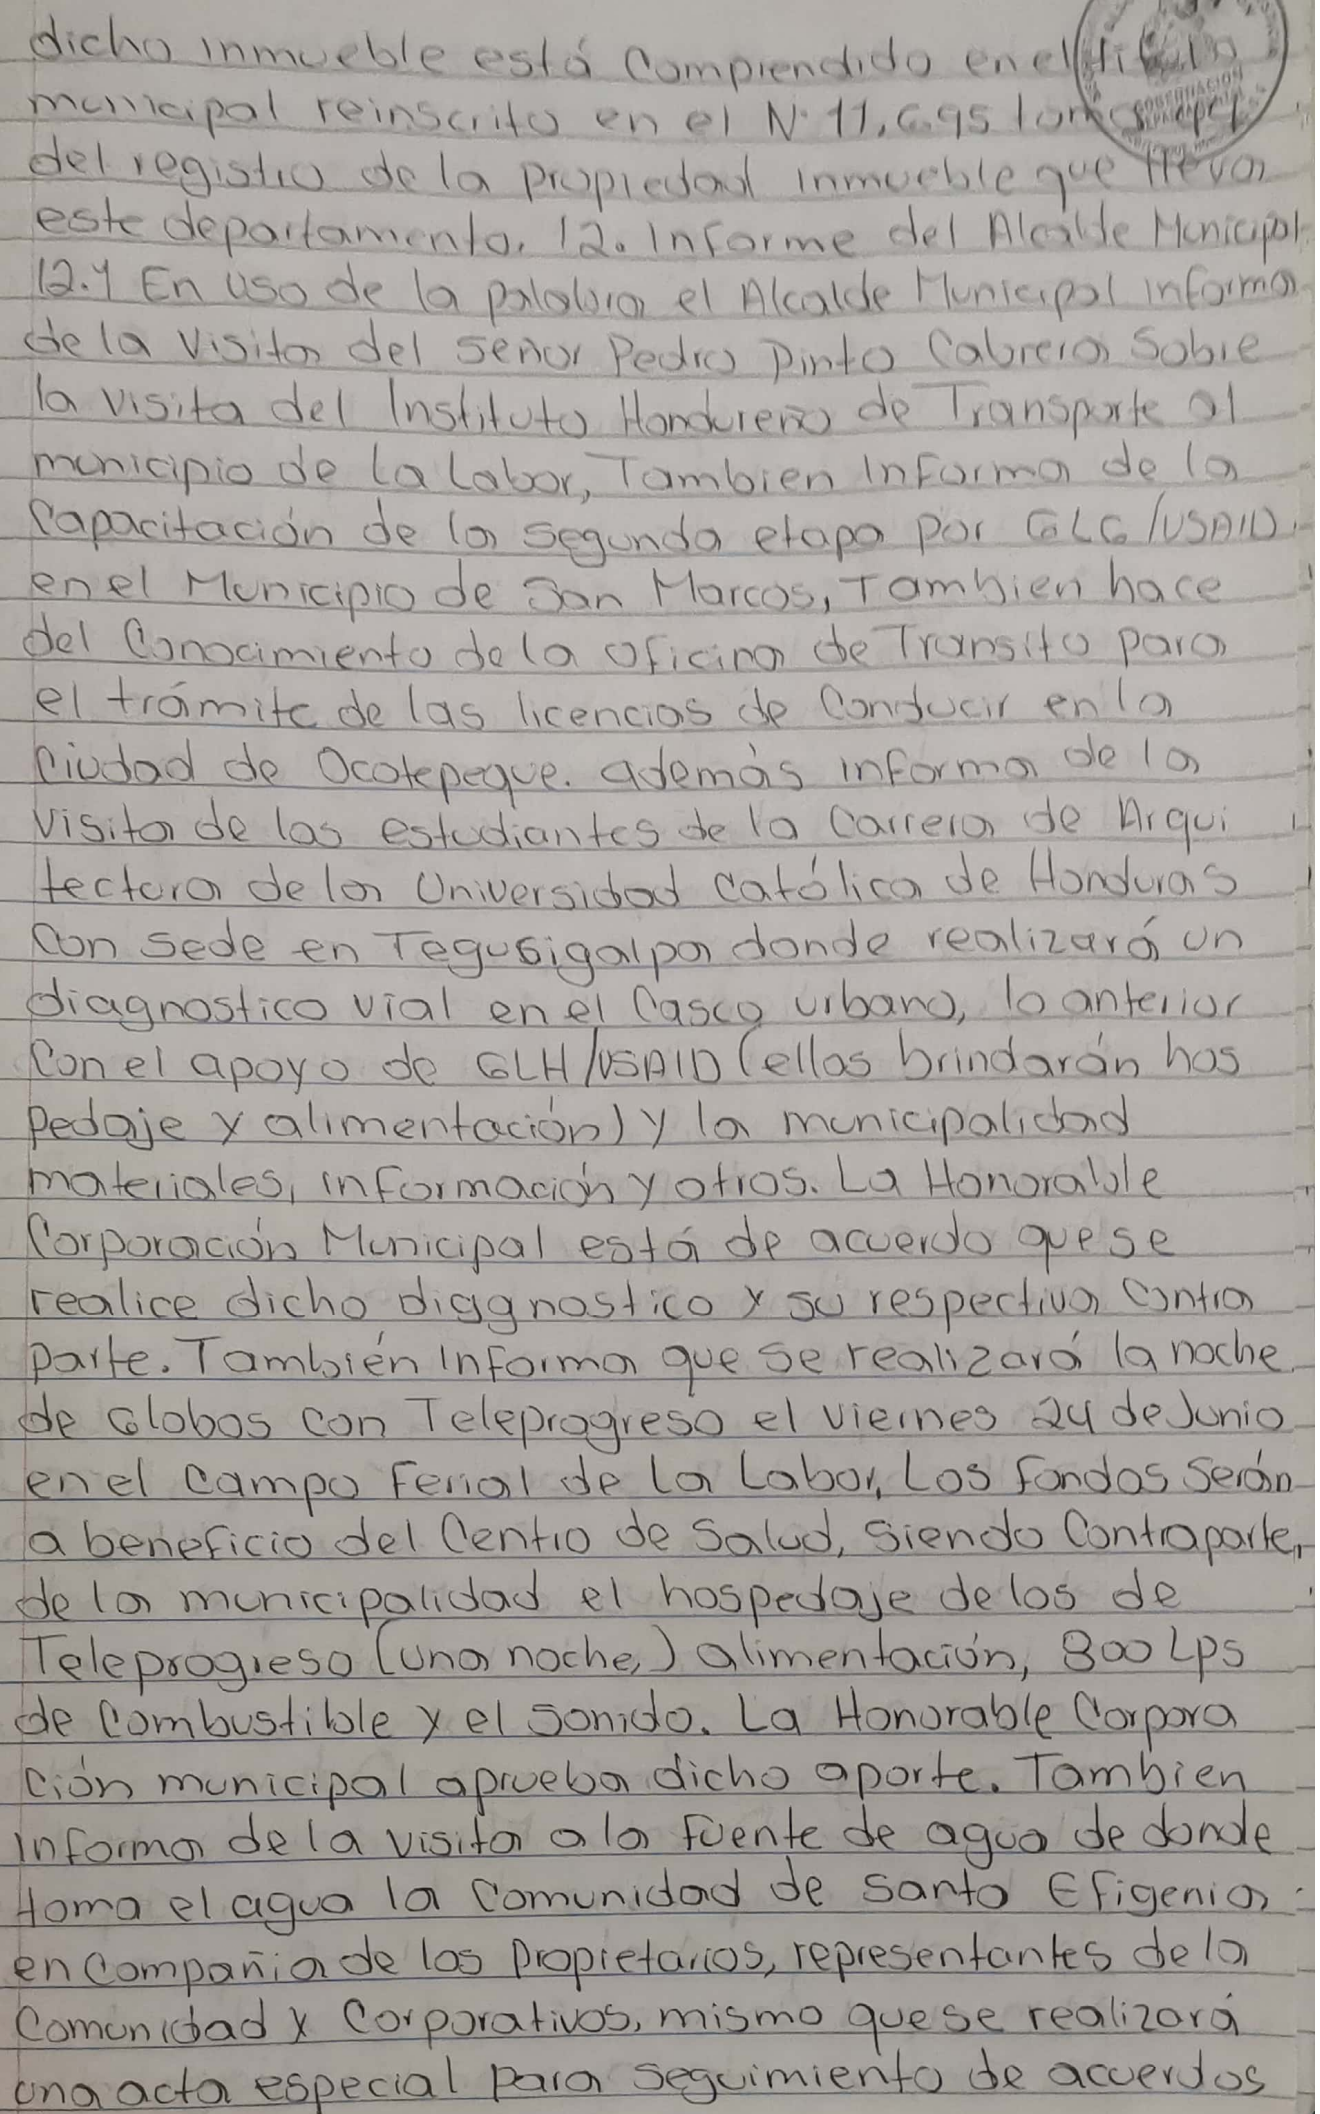 dicho inmueble está Comprendido en el titulo
municipal reinscrito en el N. 11,695 tomo
del registro de la propiedad inmueble que lleva
este departamento. 12. Informe del Alcalde Municipal
12.1 En uso de la palabra el Alcalde Municipal informa
de la visita del señor Pedro Pinto Cabrera Sobre
la visita del Instituto Hondureño de Transporte al
municipio de La Labor, Tambien Informa de la
Capacitación de la segunda etapa por GLG/USAID
en el Municipio de San Marcos, Tambien hace
del Conocimiento de la oficina de Transito para
el trámite de las licencias de Conducir en la
Ciudad de Ocotepeque. además informa de la
visita de los estudiantes de la Carrera de Arqui
tectura de la Universidad Católica de Honduras
Con sede en Tegusigalpa donde realizará un
diagnostico vial en el Casco urbano, lo anterior
Con el apoyo de GLH/USAID (ellos brindarán hos
pedaje y alimentación) y la municipalidad
materiales, información y otros. La Honorable
Corporación Municipal está de acuerdo que se
realice dicho diagnostico y su respectiva Contra
parte. También Informa que se realizará la noche
de Globos con Teleprogreso el viernes 24 de Junio
en el Campo Ferial de La Labor, Los fondos Serán
a beneficio del Centro de Salud, siendo Contraparte,
de la municipalidad el hospedaje de los de
Teleprogreso (una noche,) alimentación, 800 Lps
de Combustible y el sonido. La Honorable Corpora
ción municipal aprueba dicho aporte. Tambien
Informa de la visita a la fuente de agua de donde
toma el agua la Comunidad de Santa Efigenia
en Compañia de los propietarios, representantes de la
Comunidad y Corporativos, mismo que se realizará
una acta especial para seguimiento de acuerdos